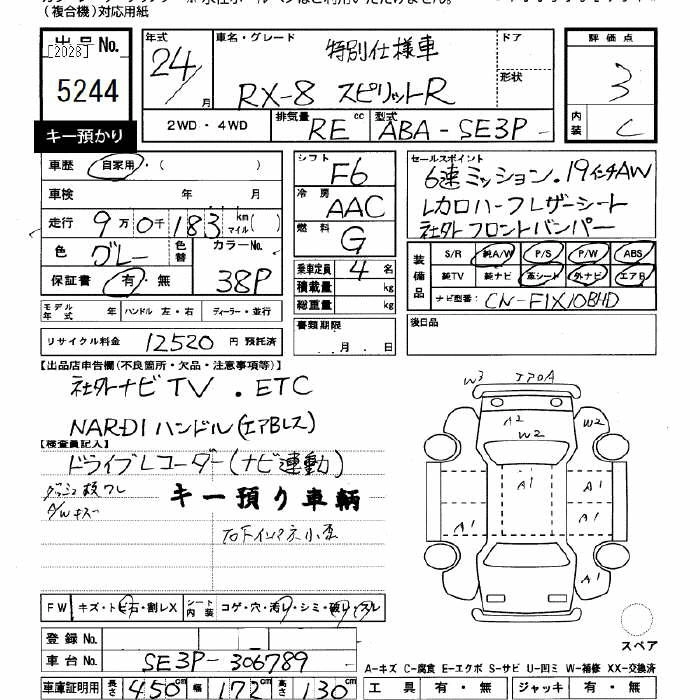 (複合機)対応用紙
出品No.
[2028]
5244
キー預かり
年式
24
月
車名・グレード
特別仕様車
RX-8 スピリットR
ドア
形状
評価点
3
内装
C
2WD・4WD
排気量
RE cc
型式
ABA-SE3P
車歴
自家用・( )
車検 年 月
走行 9万0千183 km マイル( )
色
グレー
色替
カラーNo.
38P
保証書 有・無
シフト
F6
冷房
AAC
燃料
G
乗車定員 4 名
積載量 kg
総重量 kg
セールスポイント
6速ミッション.19インチAW
レカロハーフレザーシート
社外フロントバンパー
装備品
S/R 純A/W P/S P/W ABS
純TV 純ナビ 革シート 外ナビ エアB
ナビ型番: CN-F1X10BHD
モデル年式 年 ハンドル 左・右 ディーラー・並行
書類期限
月 日
後日品
リサイクル料金 12520 円 預託済
【出品店申告欄(不良箇所・欠品・注意事項等)】
社外ナビTV . ETC
NARDIハンドル(エアBレス)
【検査員記入】
ドライブレコーダー(ナビ連動)
A/Wキズ
キー預り車輌
W3
A2
W2
W2
A1
A1
A1
A1
FW キズ・トビ石・割レX シート内装 コゲ・穴・汚レ・シミ・破レ・スレ
登録No.
車台No. SE3P-306789
車庫証明用 長さ 450 cm 幅 172 cm 高さ 130 cm
スペア
A-キズ C-腐食 E-エクボ S-サビ U-凹ミ W-補修 XX-交換済
工具 有・無 ジャッキ 有・無